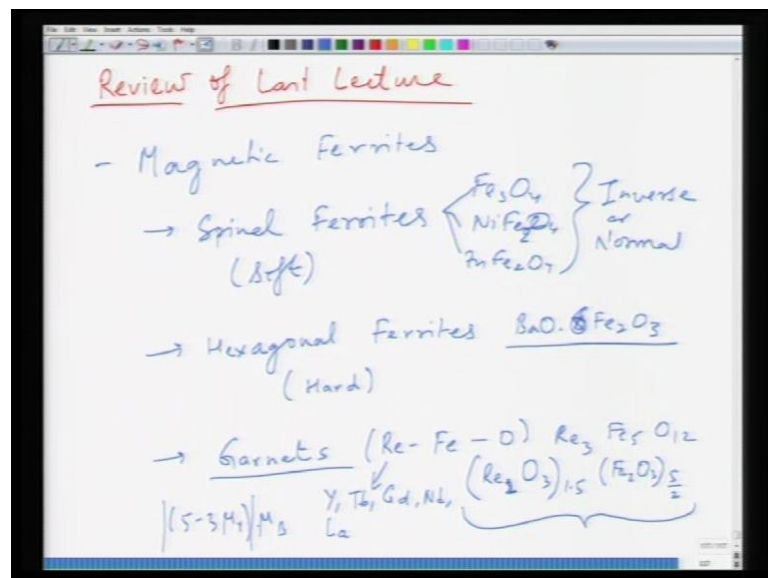 File Edit View Insert Actions Tools Help
Review of Last Lecture
- Magnetic Ferrites
→ Spinel Ferrites
(Soft)
Fe3O4
NiFe2O4
ZnFe2O4
Inverse
or
Normal
→ Hexagonal Ferrites BaO.6Fe2O3
(Hard)
→ Garnets (Re-Fe-O) Re3 Fe5 O12
Y, Tb, Gd, Nd,
La
(Re2O3)1.5 (Fe2O3)5/2
|(5-3μ